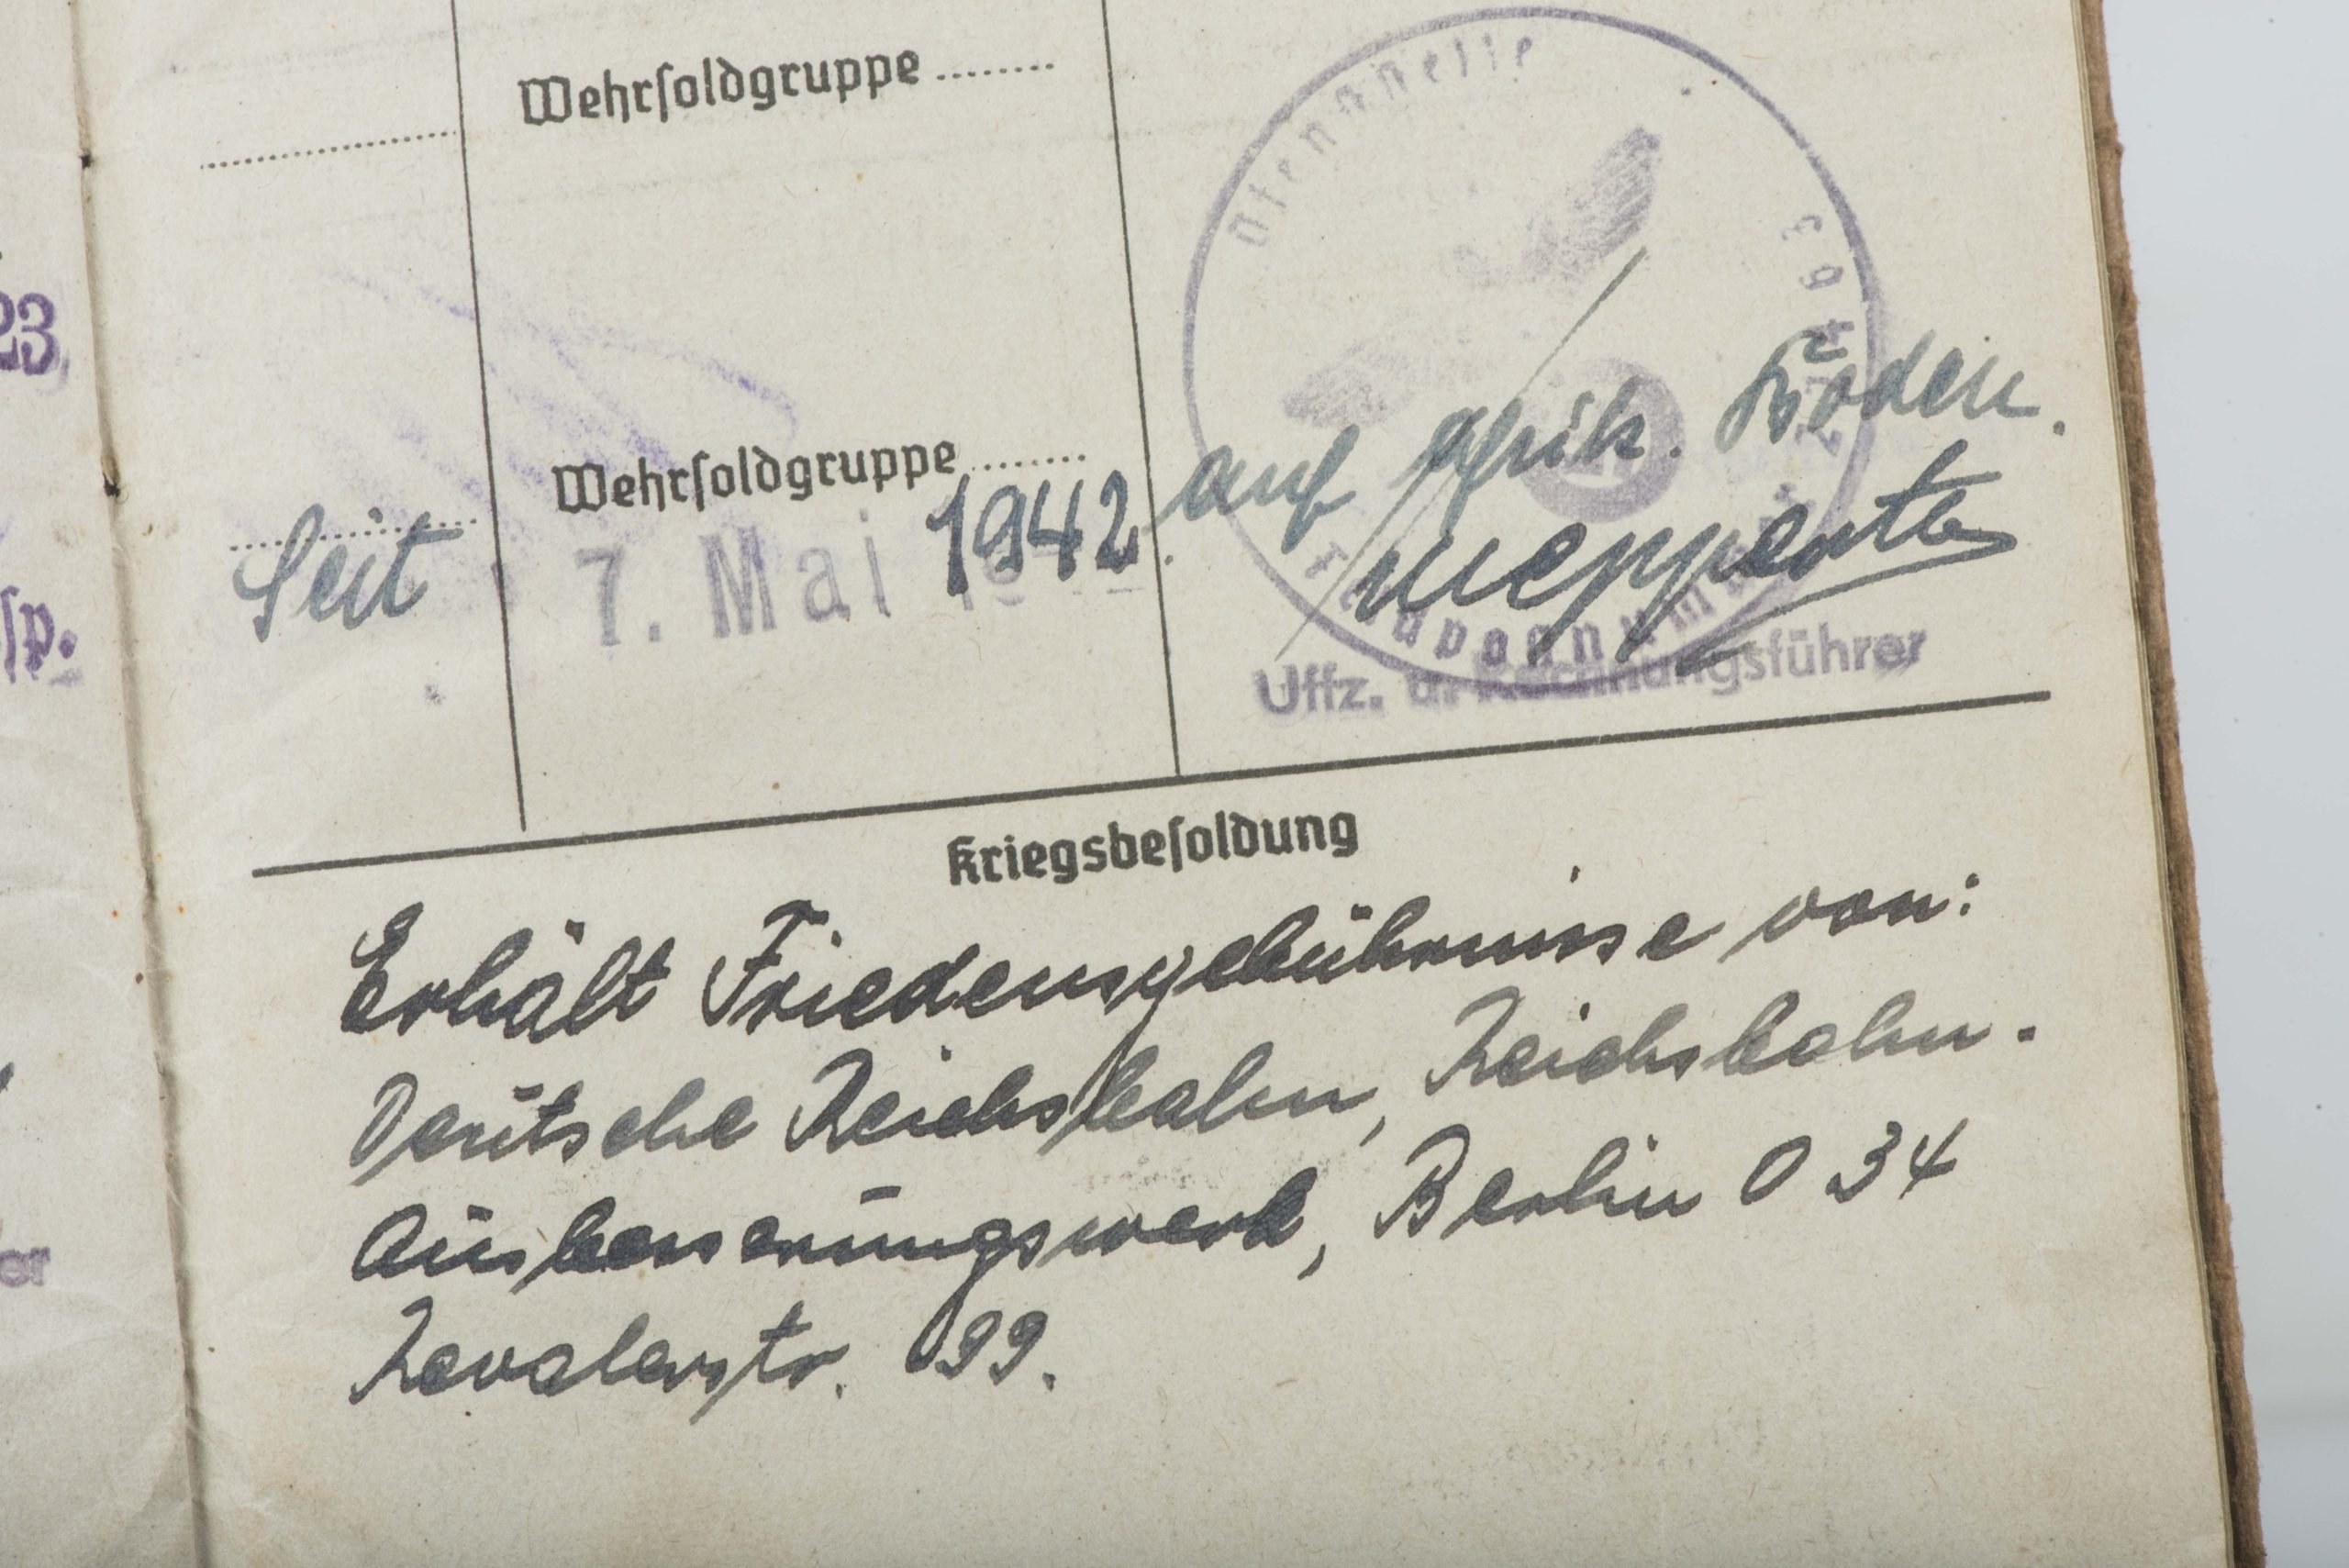 Wehrsoldgruppe ........
Wehrsoldgruppe ........
23
Seit 7. Mai 1942 auf afrik. Boden.
sp.
Dienststelle
Feldpostnummer
Uffz. u. Rechnungsführer
Kriegsbesoldung
Erhält Friedensgebührnisse von:
Deutsche Reichsbahn, Reichsbahn.
Ausbesserungswerk, Berlin O 34
or
Revalerstr. 99.